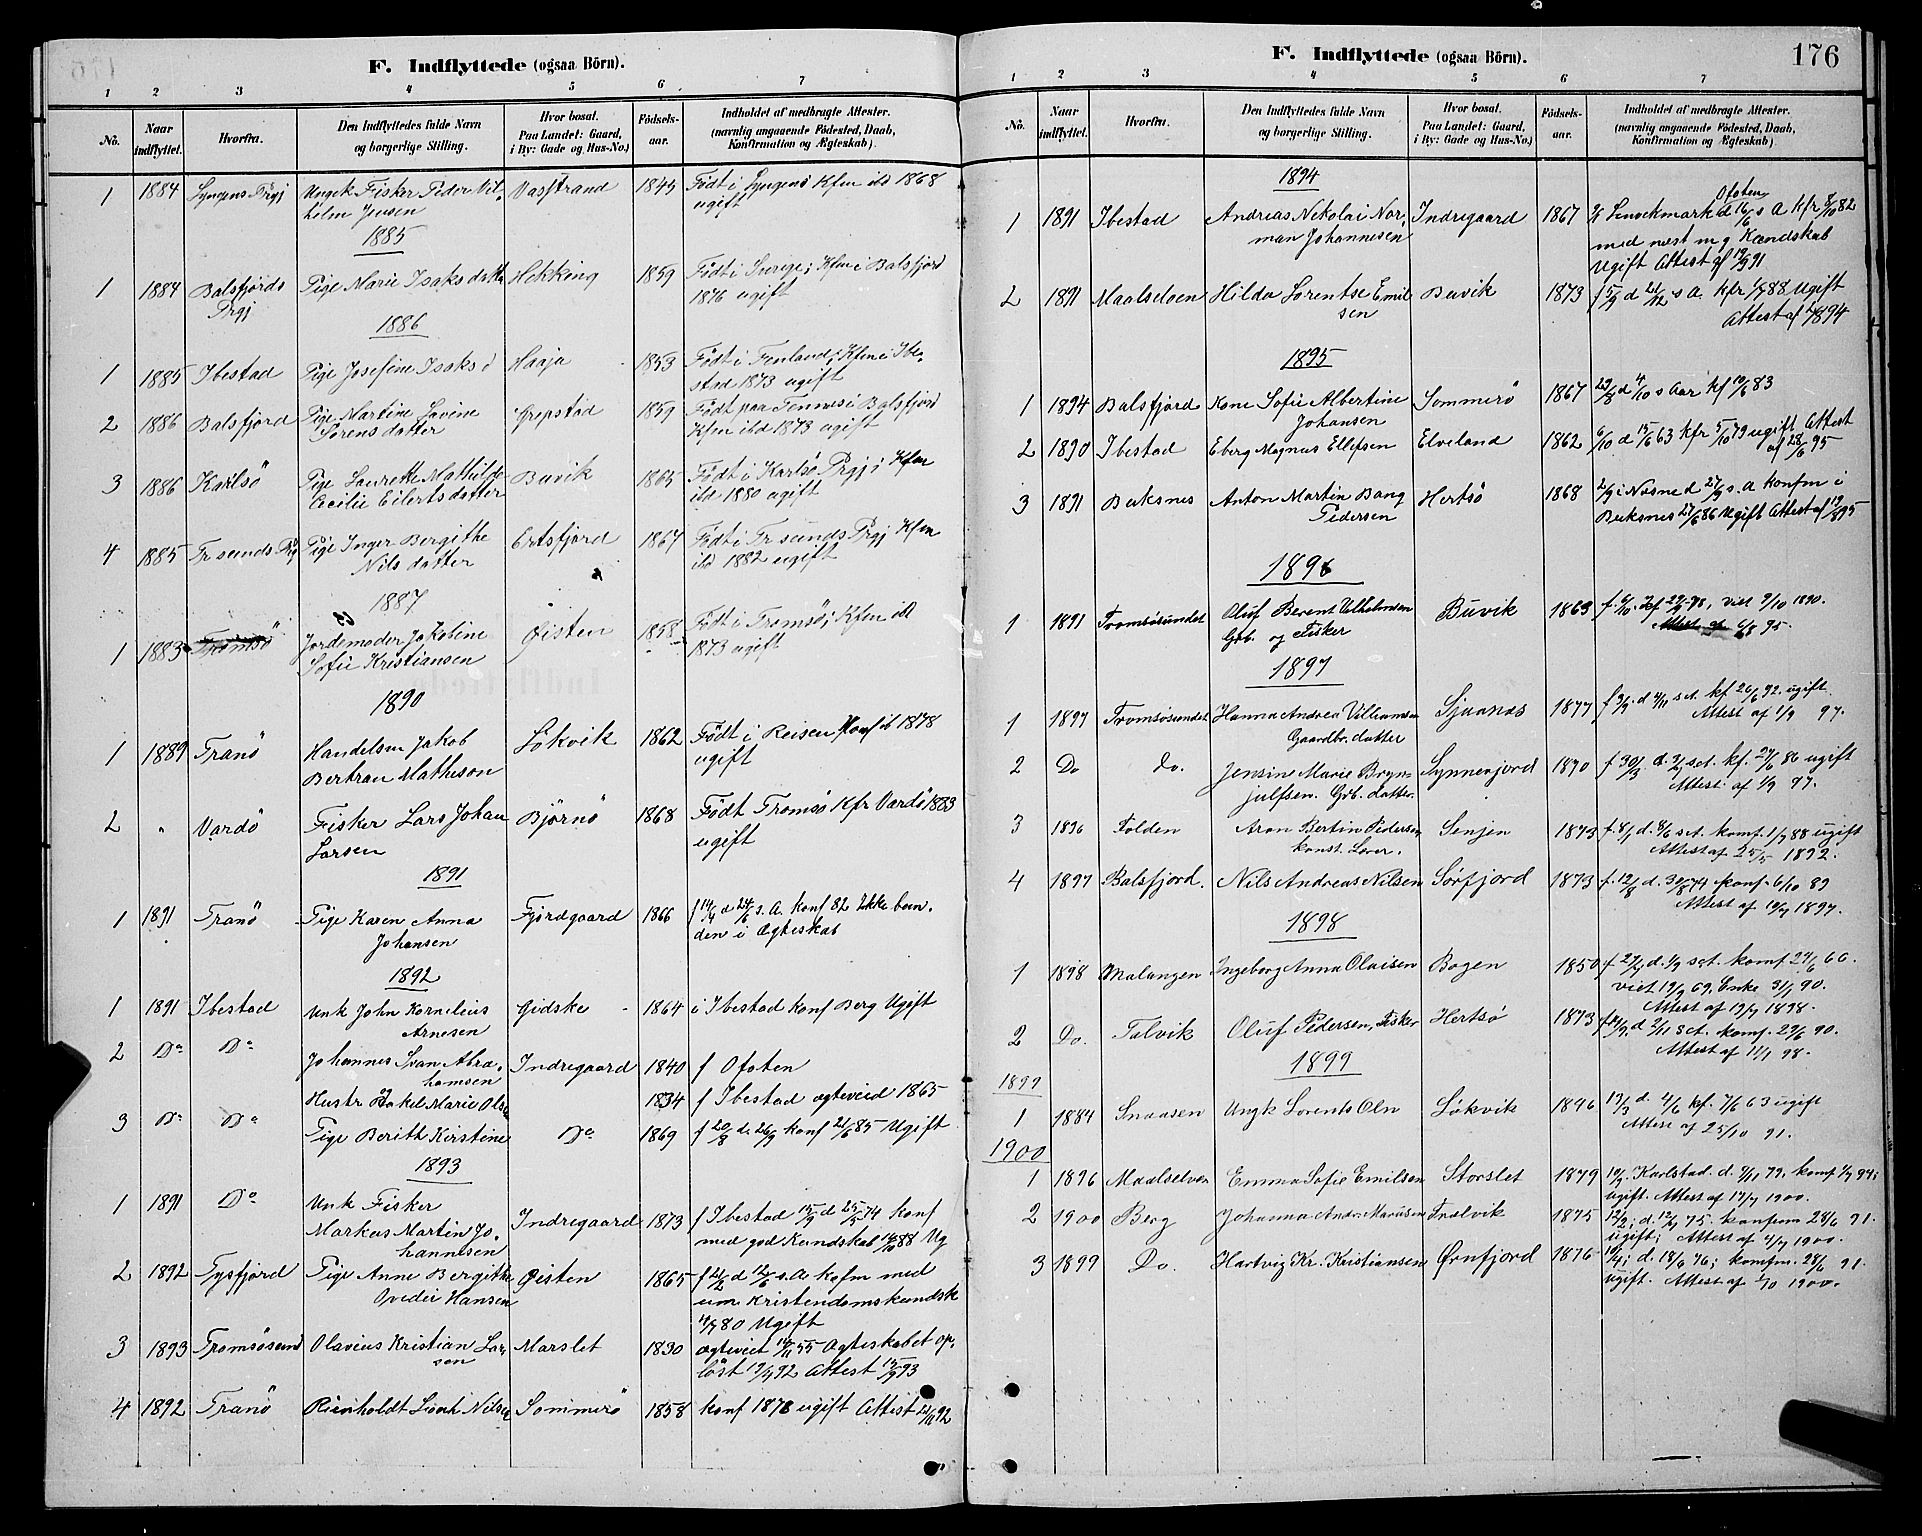 F. Indflyttede (ogsaa Börn).
1 2 3 4 5 6 7
No. Naar indflyttet. Hvorfra. Den Indflyttedes fulde Navn og borgerlige Stilling. Hvor bosat. Paa Landet: Gaard, i By: Gade og Hus-No.) Födsels-aar. Indholdet af medbragte Attester. (navnlig angaaende Födested, Daab, Konfirmation og Ægteskab).
1 1884 Lyngens Prgj Ungk Fisker Peder Vil- Vasstrand 1845 Födt i Lyngens Kfm ibd 1868
helm Jensen ugift
1885
1 1884 Balsfjords Pige Marie Isaksdatter Hekking 1859 Födt i Sverige; Kfm i Balsfjord
Prgj 1876 ugift
1886
1 1885 Ibestad Pige Josefine Isaks d Haaja 1853 Födt i Finland; Kfm i Ibe-
stad 1873 ugift
2 1886 Balsfjord Pige Martine Lovine Grepstad 1859 Födt paa Tennes i Balsfjord
Sörensdatter Kfm ibd 1873 ugift
3 1886 Karlsö Pige Laurette Mathilde Buvik 1865 Födt i Karlsö Prgj; Kfm
Cecilie Eilertsdatter ibd 1880 ugift
4 1885 Tr sunds Prg Pige Inger Bergithe Ertsfjord 1867 Födt i Tr sunds Prgj Kfm
Nilsdatter ibd 1882 ugift
1887
1 1883 Tromsö Jordemoder Jakobine Öisten 1858 Födt i Tromsö; Kfm ibd
Sofie Kristiansen 1873 ugift
1890
1 1889 Tranö Handelsm Jakob Lökvik 1862 Födt i Reisen Konf ib 1878
Bertran Mathison ugift
2 " Vardö Fisker Lars Johan Björnö 1868 Födt Tromsö Kfr Vardö 1883
Larsen ugift
1891
1 1891 Tranö Pige Karen Anna Fjordgaard 1866 f 14/4 d 24/6 s. A. konf 82 Ikke bun-
Johansen den i Ægteskab
1892
1 1891 Ibestad Unk John Kornelius Gidske 1864 i Ibestad Konf Berg Ugift
Arnesen
2 Do Do Johannes Svan Abra- Indregaard 1840 f Ofoten
hamsen
og Hustr Rakel Marie Olsd 1834 f Ibestad ægteviet 1865
3 Do Do Pige Berith Kirstine Do 1869 f 20/8 d. 26/9 konf 21/6 85 Ugift
1893
1 1891 Do Unk Fisker
Markus Martin Jo- Indregaard 1873 f Ibestad 15/9 d 25/5 74 konf
hannesen med god Kundskab 14/10 88 Ug
2 1892 Tysfjord Pige Anne Bergithe Öisten 1865 f 21/2 d 12/6 s. A. kofm med
Ovedie Hansen um Kristendomskundsk
4/7 80 Ugift
3 1893 Tromsösund Olavius Kristian Lar- Marslet 1830 ægteviet 14/11 55 Ægteskabet op-
sen löst 19/9 92 Attest 15/9 93
4 1892 Tranö Reinholdt Nilsen Sommerö 1858 konf 1878 ugift Attest 21/11 92
F. Indflyttede (ogsaa Börn).
176
1 2 3 4 5 6 7
No. Naar indflyttet. Hvorfra. Den Indflyttedes fulde Navn og borgerlige Stilling. Hvor bosat. Paa Landet: Gaard, i By: Gade og Hus-No.) Födsels-aar. Indholdet af medbragte Attester. (navnlig angaaende Födested, Daab, Konfirmation og Ægteskab).
1894
Ofoten
1 1891 Ibestad Andreas Nikolai Nor- Indregaard 1867 d 16/6 s A kfr 8/10 82
man Johannesen med næst m g Kundskab
Ugift Attest af 19/9 91
2 1891 Maalselven Hilda Lorentse Emil- Buvik 1873 f 5/9 d 21/12 s A. kfr 1/7 88 Ugift
sen Attest af 1894
1895
1 1894 Balsfjord Kone Sofie Albertine Sommerö 1867 29/8 d 4/10 s Aar kf 10/6 83
Johansen
2 1890 Ibestad Eberg Magnus Ellefsen Elveland 1862 6/10 d 15/6 63 kfr 5/10 79 ugift Attest
af 28/6 95
3 1891 Buksnes Anton Martin Bang Hertsö 1868 2/9 i Næsne d 27/9 s. a konfm i
Pedersen Buksnes 27/6 86 Ugift Attest af 19/8 95
1896
1 1891 Tromsösundet Oluf Berent Vilhelmsen Buvik 1863 f. 6/10. Kf 29/9 78, viet 9/10 1890.
Grb. og Fisker Attest af 6/8 95.
1897
1 1897 Tromsösundet Hanna Andrea Villiamsen Sjaanæs 1877 f 9/9. d 4/11 s.A. kf 26/6 92. ugift
Gaardbr. datter Attest af 1/9 97.
2 Do Do. Jensine Marie Bryn- Synnerjord 1870 f 30/3. d. s.A. kf. 27/6 86 ugift
julfsen. Grb. datter. Attest af 1/9 97.
3 1896 Folden Aron Bertin Pedersen Senjen 1873 f. 8/1 d. 8/6 s.A. komf. 1/7 88 ugift
konst. Lærer. Attest af 25/5 1892.
4 1897 Balsfjord. Nils Andreas Nilsen Sörfjord 1873 f. 12/8 d. 30/8 74 konf. 6/10 89
Attest af 10/7 1897.
1898
1 1898 Malangen Ingeborg Anna Olaisen Bogen 1850 f 27/7 d. 1/9 s.A. komf 29/6 66.
viet 19/9 69. Enke 31/1 90.
Attest af 19/7 1898.
2 Do. Talvik Oluf Pedersen, Fisker Hertsö 1873 d 2/11 s.A. komf. 29/6 90.
Attest af 11/1 98.
1899
1899
1 1884 Snaasen Ungk Lorents Oln Lökvik 1846 13/3 d. 4/6 kf. 7/6 63 ugift
Attest af 25/10 91.
1900
1 1896 Maalselven Emma Sofie Emilsen Storslet 1879 10/9. Karlstad. d. 9/11 79. komf 1/7 94;
ugift. Attest af 19/7 1900.
2 1900 Berg Johanna Andr. Mariusen Trælvik 1875 12/2; d. 12/4 75. konfirm 28/6 91.
ugift; Attest af 4/7 1900.
3 1899 Do. Hartvig Kr. Kristiansen Ørnfjord 1876 19/4; d. 18/6 76; komfm. 28/6 91.
ugift. Attest af 1/10 1900.